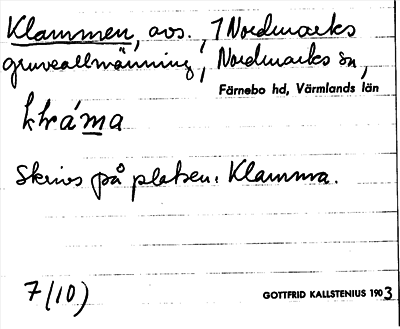 Klammen, avs., i Nordmarks
gruveallmänning, Nordmarks sn,
Färnebo hd, Värmlands län
Skrives på platsen: Klamma.
7/10)
GOTTFRID KALLSTENIUS 1903